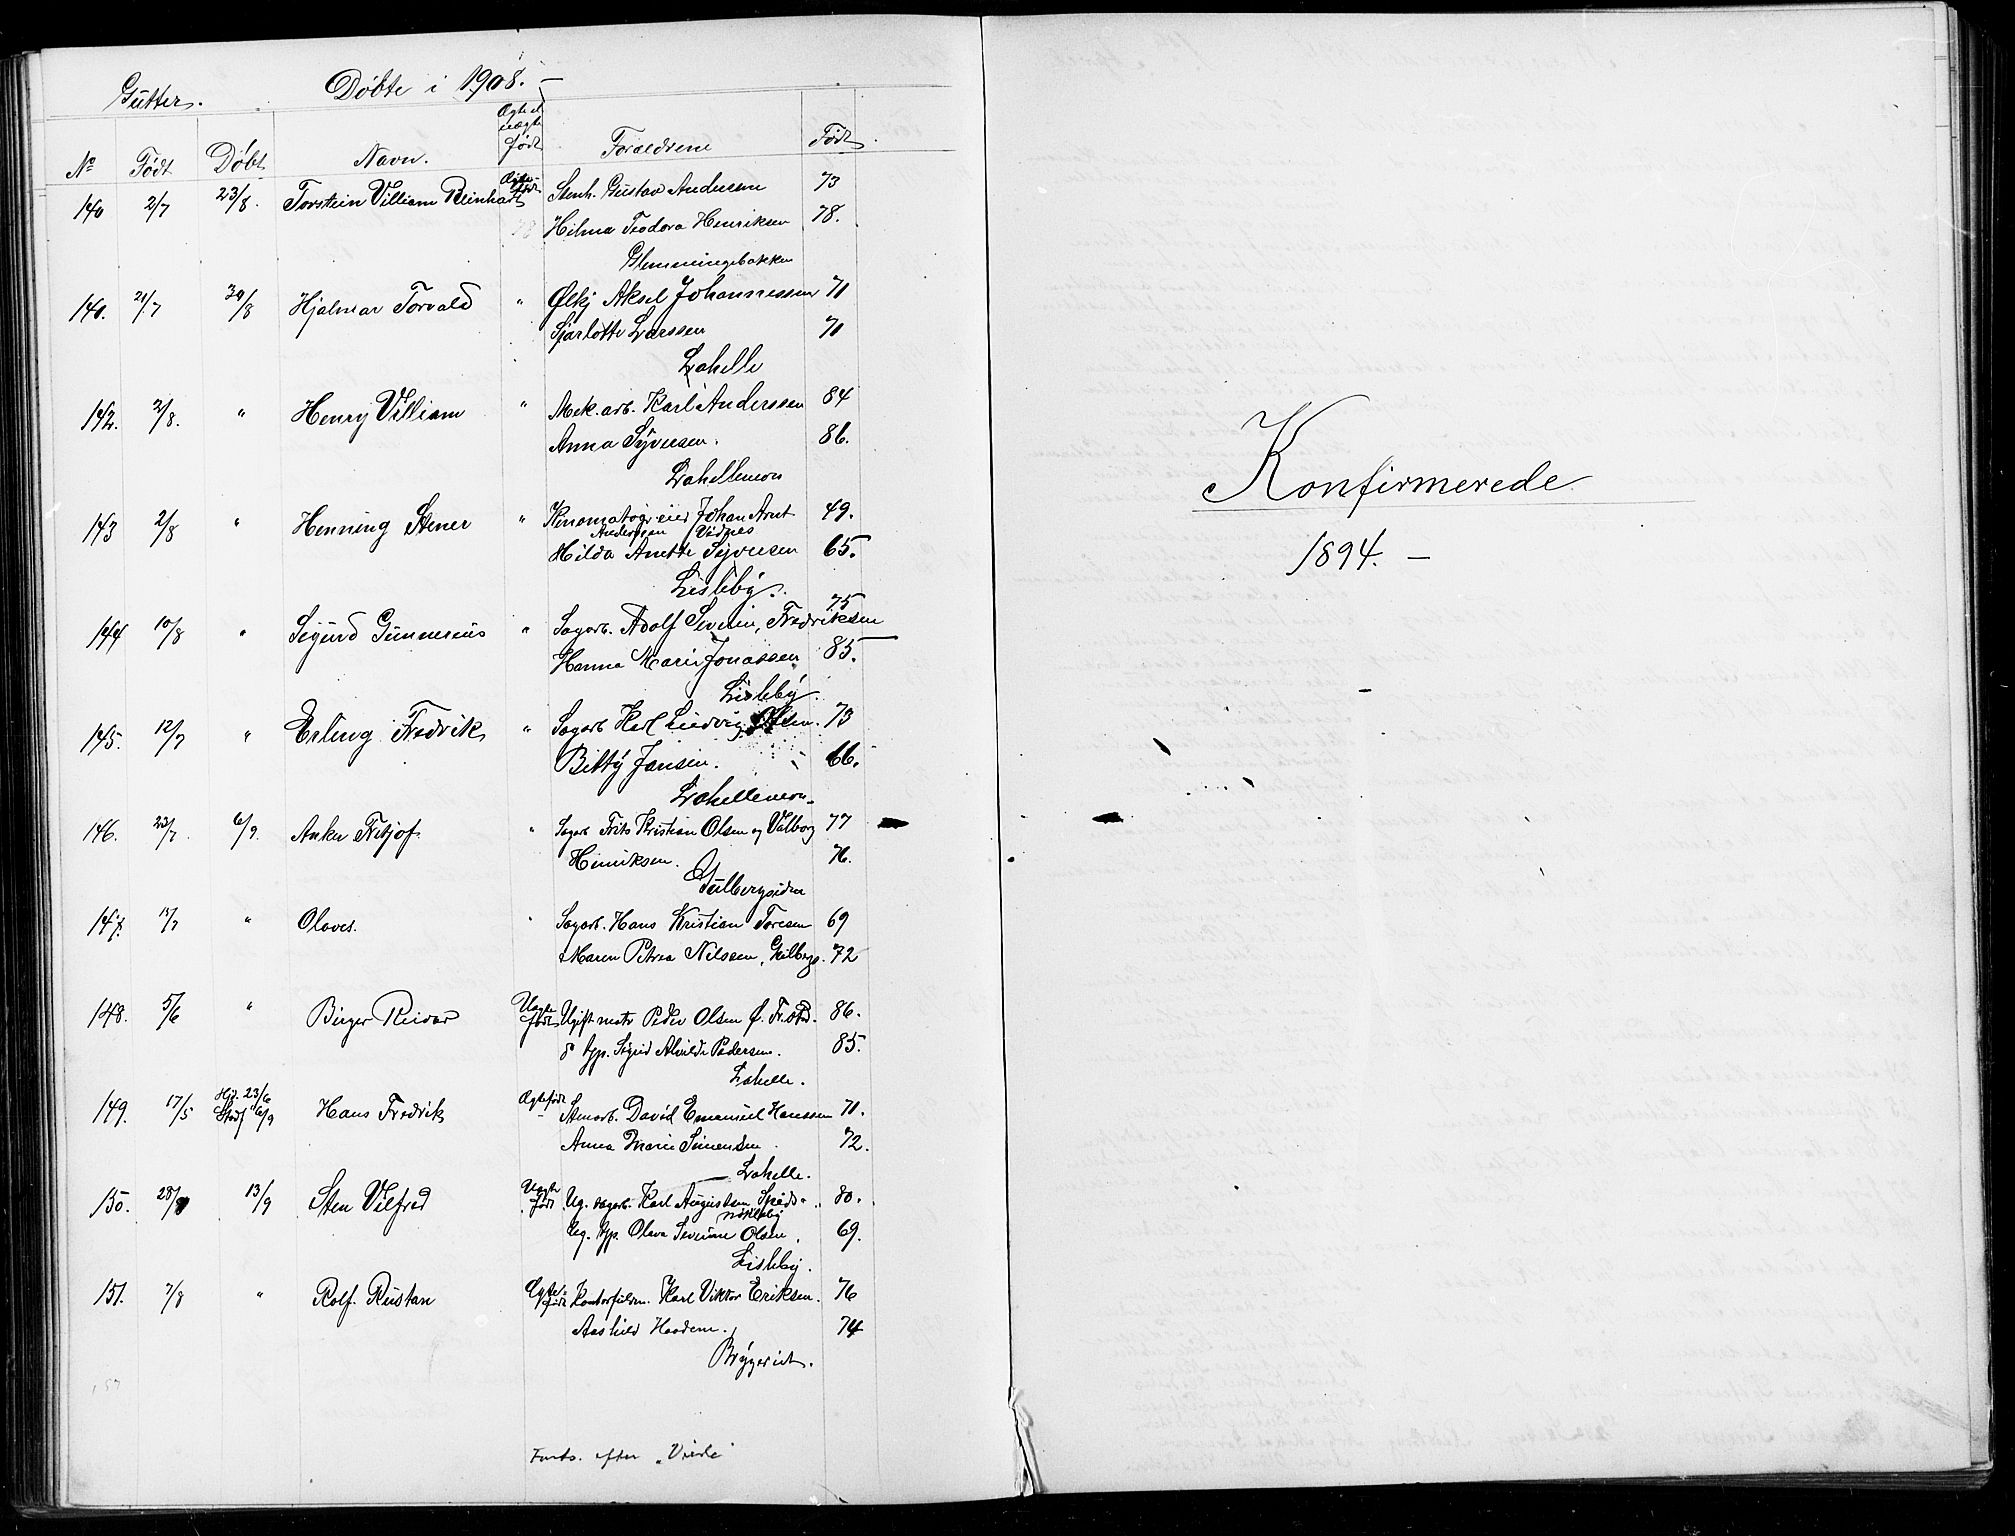 Gutter. Døbte i 1908. –
No Født Døbt Navn. Ægte el. uægte født Forældrene Født
140 2/7 23/8. Torstein Villiam Reinhart Ægtefødt Stenh. Gustav Andersen 73
Hilma Teodora Henriksen 78.
Glemmingebakken
140. 21/7 30/8 Hjalmar Torvald " Ølkj Aksel Johannessen 71
Sjarlotte Larssen 71
Lahelle
142. 2/8. " Henry Villiam " Mek. arb. Karl Anderssen 84
Anna Syversen. 86.
Lahellemoen
143 2/8 " Henning Stener " Kinomatogr. eier Johan Arnt 49.
Anderssen Vidnes
Hilda Anette Syversen 65.
Lisleby.
144 10/8 " Sigurd Gunnerius " Sagarb. Adolf Severin Fredriksen 75
Hanna Marie Jonassen 85.
Lisleby.
145. 12/7 " Erling Fredrik " Sagarb Karl Ludvig Olsen. 73
Betty Jansen. 66.
Lahellemoen
146. 23/7 6/9. Anker Fritjof. " Sagarb Frits Kristian Olsen og Valborg 77
Henriksen. 76.
Gulbergsiden
147. 13/7 " Olaves. " Sagarb. Hans Kristian Toresen 69
Maren Petrea Nilssen, Gulbergs. 72
148. 5/6 " Birger Reidar Uægtefødt Ugift matr Peder Olsen Ø. Fr.stad. 86.
& tjp. Sigrid Alvilde Pedersen. 85.
Lahelle.
149. 17/5 Hjd. 23/6 Stadf 6/9 Hans Fredrik Ægtefødt Stenarb. David Emanuel Hanssen 71.
Anna Marie Simensen 72.
Lahelle.
150. 28/7 13/9 Sten Vilfred Uægtefødt Ug. sagarb. Karl Augustsen, Spåds- 80.
Ug. tjp. Olava Severine Olsen. 69.
Lisleby.
151. 7/8 " Rolf Rustan Ægtefødt Kontorfuldm. Karl Viktor Eriksen. 76
Aashild Haadem. 74
Bryggeriet.
Forts. efter "Viede"
Konfirmerede
1894. –